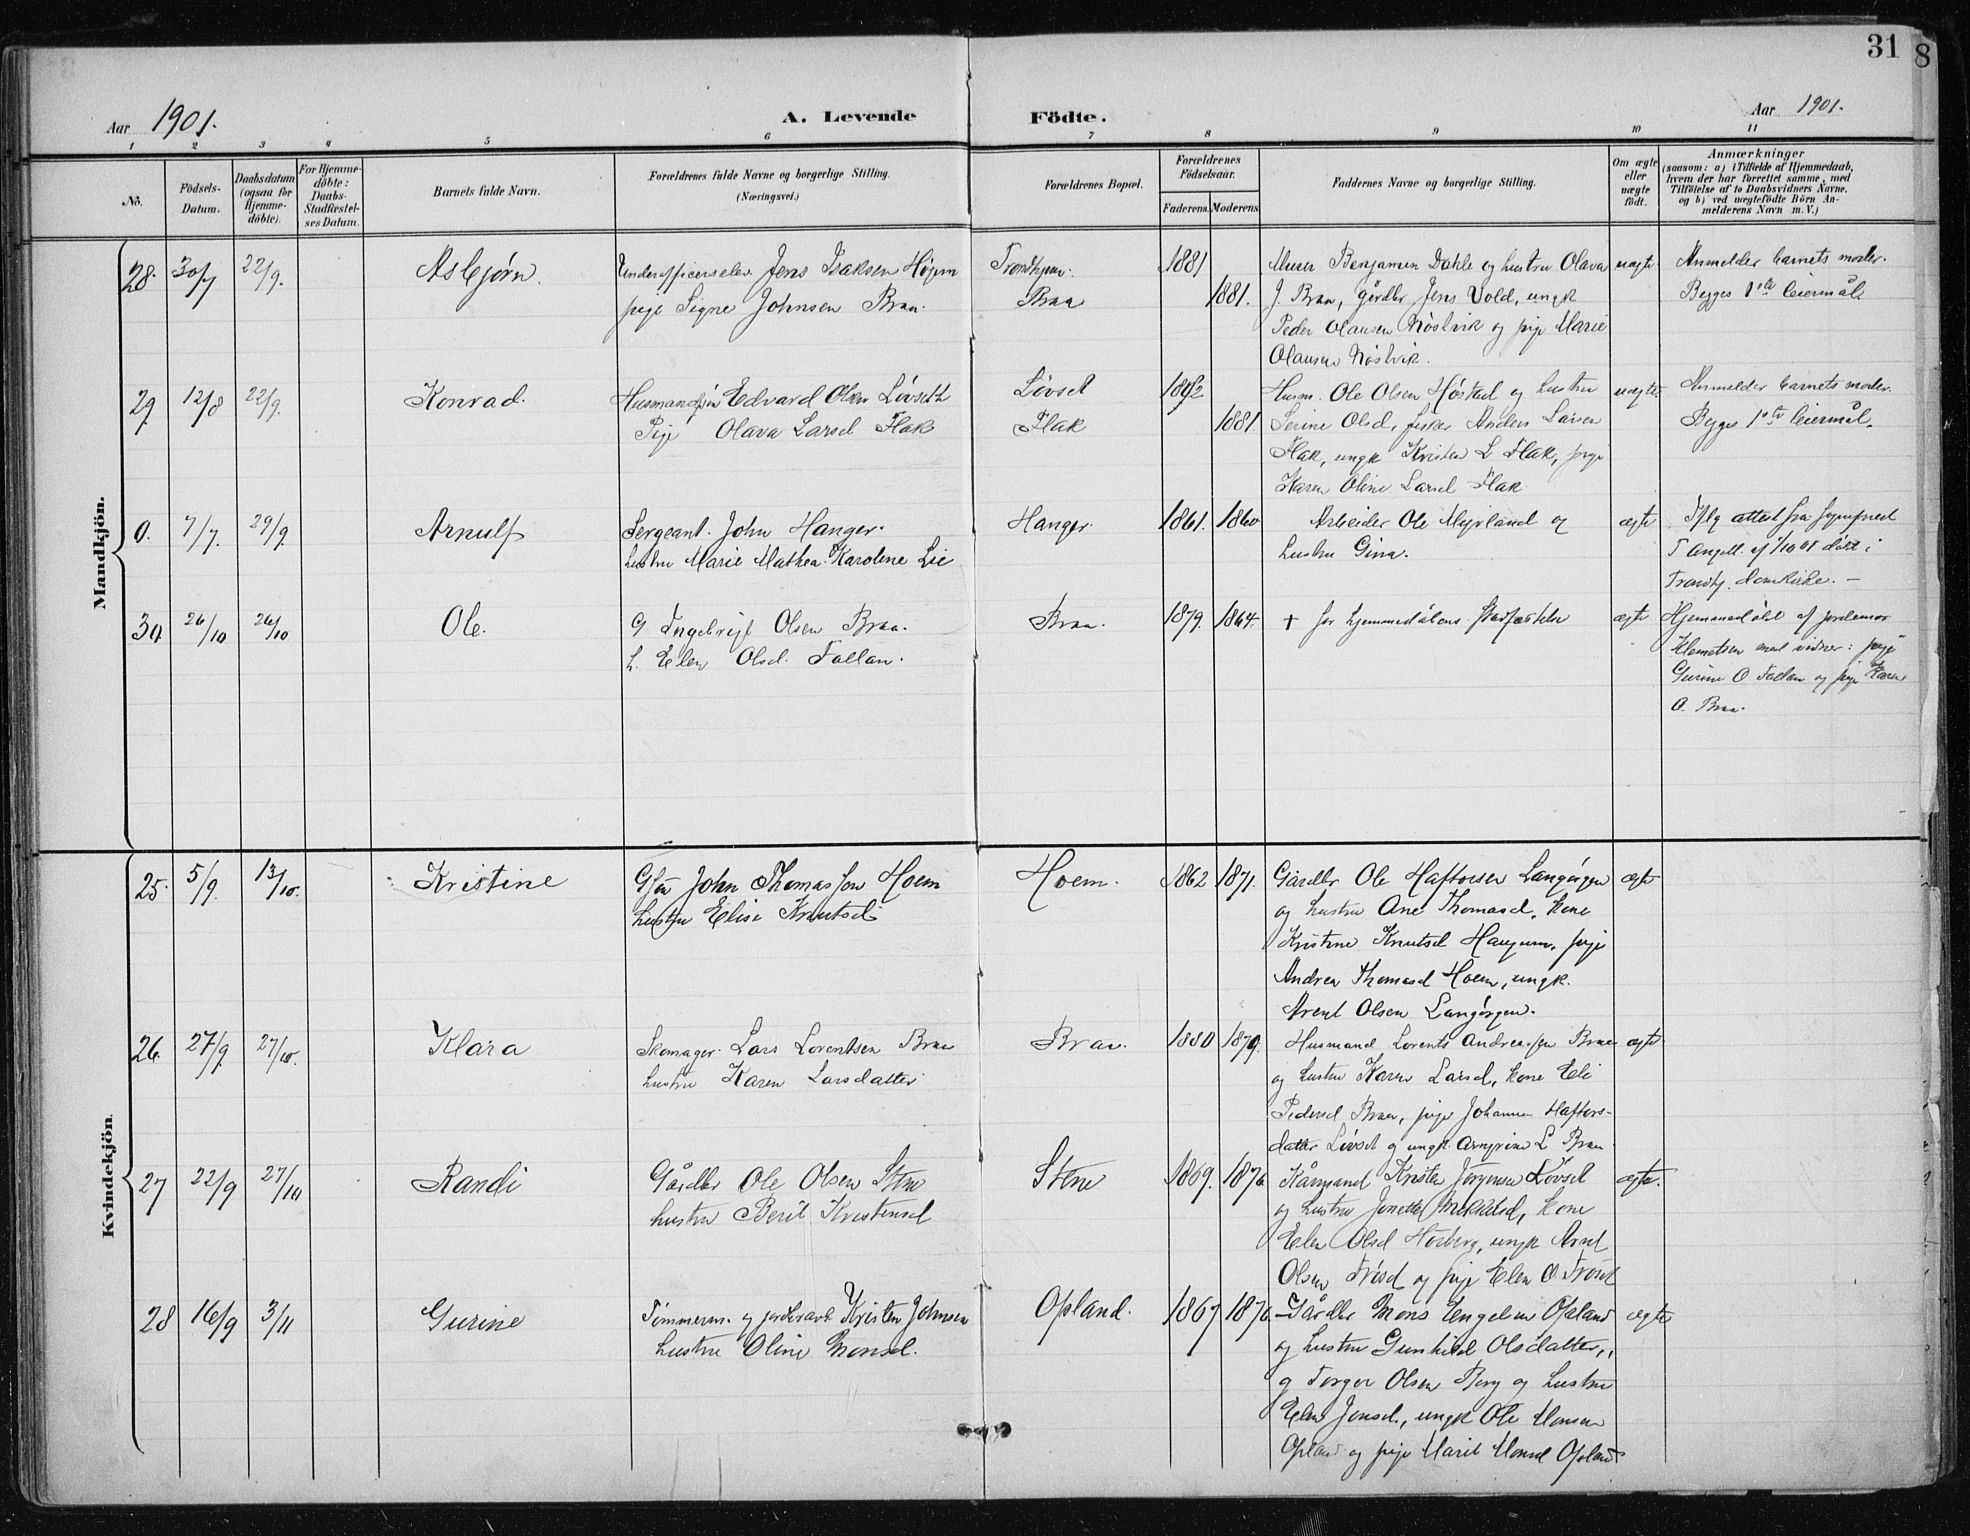 31
8
Aar 1901.
A. Levende Födte.
Aar 1901.
1 2 3 4 5 6 7 8 9 10 11
No.
Födsels-Datum.
Daabsdatum (ogsaa for Hjemme-döbte).
For Hjemme-döbte: Daabs-Stadfæstel-ses Datum.
Barnets fulde Navn.
Forældrenes fulde Navne og borgerlige Stilling. (Næringsvei.)
Forældrenes Bopæl.
Forældrenes Födselsaar.
Faderens. Moderens.
Faddernes Navne og borgerlige Stilling.
Om ægte eller uægte födt.
Anmærkninger
(saasom: a) i Tilfælde af Hjemmedaab,
hvem der har forrettet samme, med
Tilföielse af to Daabsvidners Navne.
og b) ved uægtefödte Börn An-
melderens Navn m. V.)
Mandkjön.
28. 30/7 22/9. Asbjørn. Underofficerselev Jens Isaksen Højem Trondhjem. 1881 Murer Benjamin Dahle og hustru Olava uægte Anmelder barnets moder.
pige Signe Johnsen Braa. Braa 1881. J. Braa, gårdbr Jens Vold, ungk Begges 1ste leiermål
Peder Olausen Nöstvik og pige Marie
Olausen Nöstvik.
29. 12/8 22/9. Konrad. Husmandssön Edvard Olsen Lövseth Lövset 1882 Husm. Ole Olsen Höstad og hustru uægte Anmelder barnets moder
Pige Olava Larsd Flak Flak 1881 Serine Olsd, fisker Anders Larsen Begges 1ste leiermål.
Flak, ungk Kristen L Flak, pige
Karen Oline Larsd Flak
0. 7/7. 29/9. Arnulf Sergeant. John Hanger. Hanger. 1861. 1860 Arbeider Ole Myrland og ægte Iflg attest fra sognepræst
hustru Marie Mathea Karoline Lie hustru Gina. T Angell. af 1/10 01 døbt i
Trondhj. domkirke. —
30 26/10 26/10 Ole. G Ingebrigt Olsen Braa. Braa. 1879. 1864. + før hjemmedåbens Stadfæstelse ægte Hjemmedöbt af jordemor
h. Elen Olsd. Follan. Klemetsen med vidner: pige
Gurine O Follan og pige Karen
O. Braa.
Kvindekjön.
25. 5/9. 13/10. Kristine Gsön John Thomassen Hoem Hoem. 1862 1871. Gårdbr Ole Haftorsen Langörgen ægte
hustru Elise Knutsd og hustru Ane Thomasd, kone
Kristine Knutsd Haugum, pige
Andrea Thomasd Hoem, ungk.
Arent Olsen Langörgen.
26. 27/9. 27/10. Klara Skomager. Lars Lorentsen Braa Braa. 1880 1879. Husmand Lorents Andreassen Braa ægte
hustru Karen Larsdatter og hustru Karen Larsd, kone Eli
Pedersd Braa, pige Johanna Haftors-
datter Lövset og ungk. L Braa.
27 22/9 27/10 Randi Gårdbr Ole Olsen Sten Stene 1869. 1876 Kårmand Kristen Jörgensen Lövset ægte.
hustru Berit Kristensd og hustru Jonetta Mikkelsd, kone
Elen Olsd Horberg, ungk Arnt
Olsen Frösd og pige Elen O. Frösd
28 16/9 3/11 Gurine Tömmerm. og Kristen Johnsen Opland. 1867 1876. Gårdbr Mons Engelsen Opland ægte
hustru Oline Monsd. og hustru Gunhild Olsdatter,
g Torger Olsen Berg og hustru
Elen Jonsd., ungk Ole Monsen
Opland og pige Marit Monsd Opland